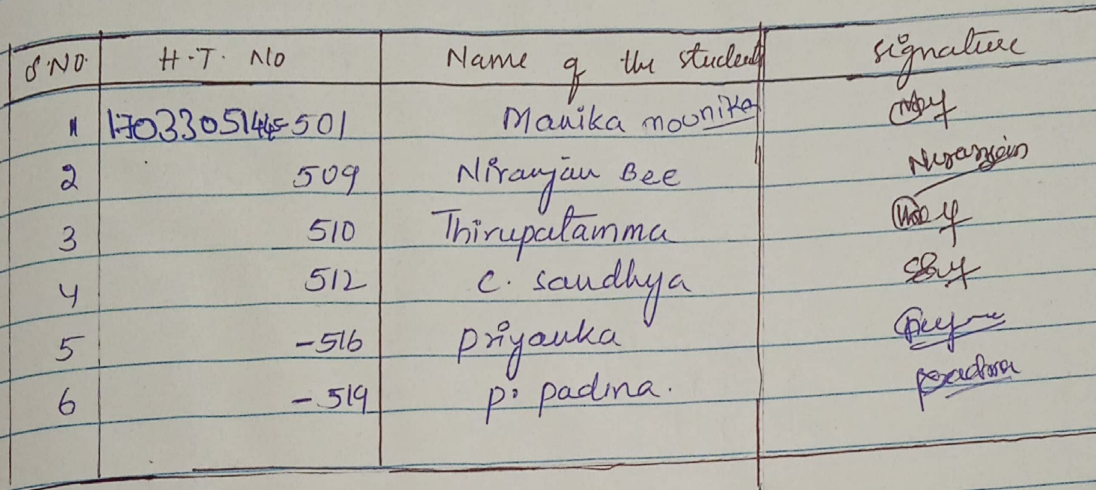 S.NO. H.T. NO Name of the student signature
1 17033051445-501 Manika mounika
2 509 Niranjan Bee Niranjan
3 510 Thirupatamma
4 512 C. Sandhya
5 -516 Priyanka
6 -519 P. Padma. padma